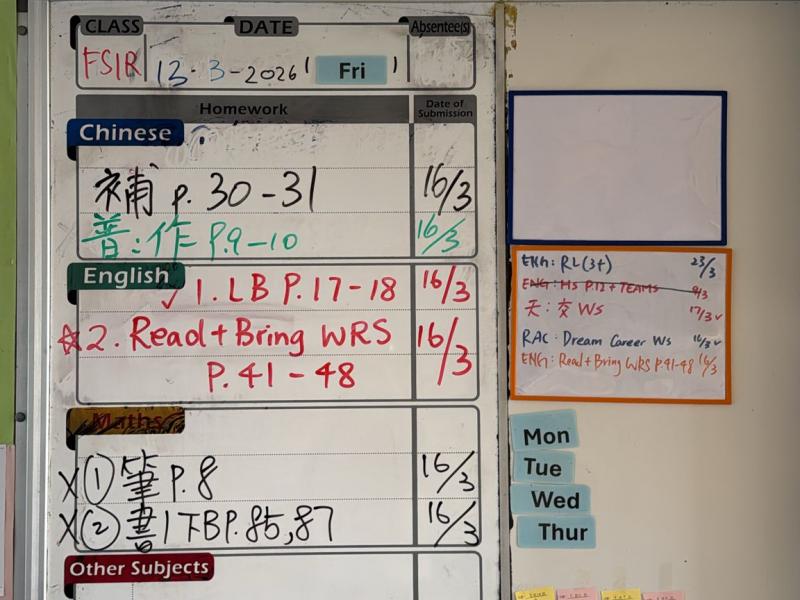 CLASS DATE Absentee(s)
FSIR 13.3-2026 ( Fri )
Homework Date of Submission
Chinese
補 p. 30-31 16/3
普:作 P.9-10 16/3
English
✓ 1. LB P.17-18 16/3
☆2. Read+Bring WRS 16/3
P.41-48
Maths
X ① 筆 p.8 16/3
X ② 書1下B P.85,87 16/3
Other Subjects
ENG: RL(3+) 23/3
ENG: HS P.12+TEAMS 9/3
天:交 WS 17/3 ✓
RAC: Dream Career WS 16/3 ✓
ENG: Read+Bring WRS P.41-48 16/3
Mon
Tue
Wed
Thur